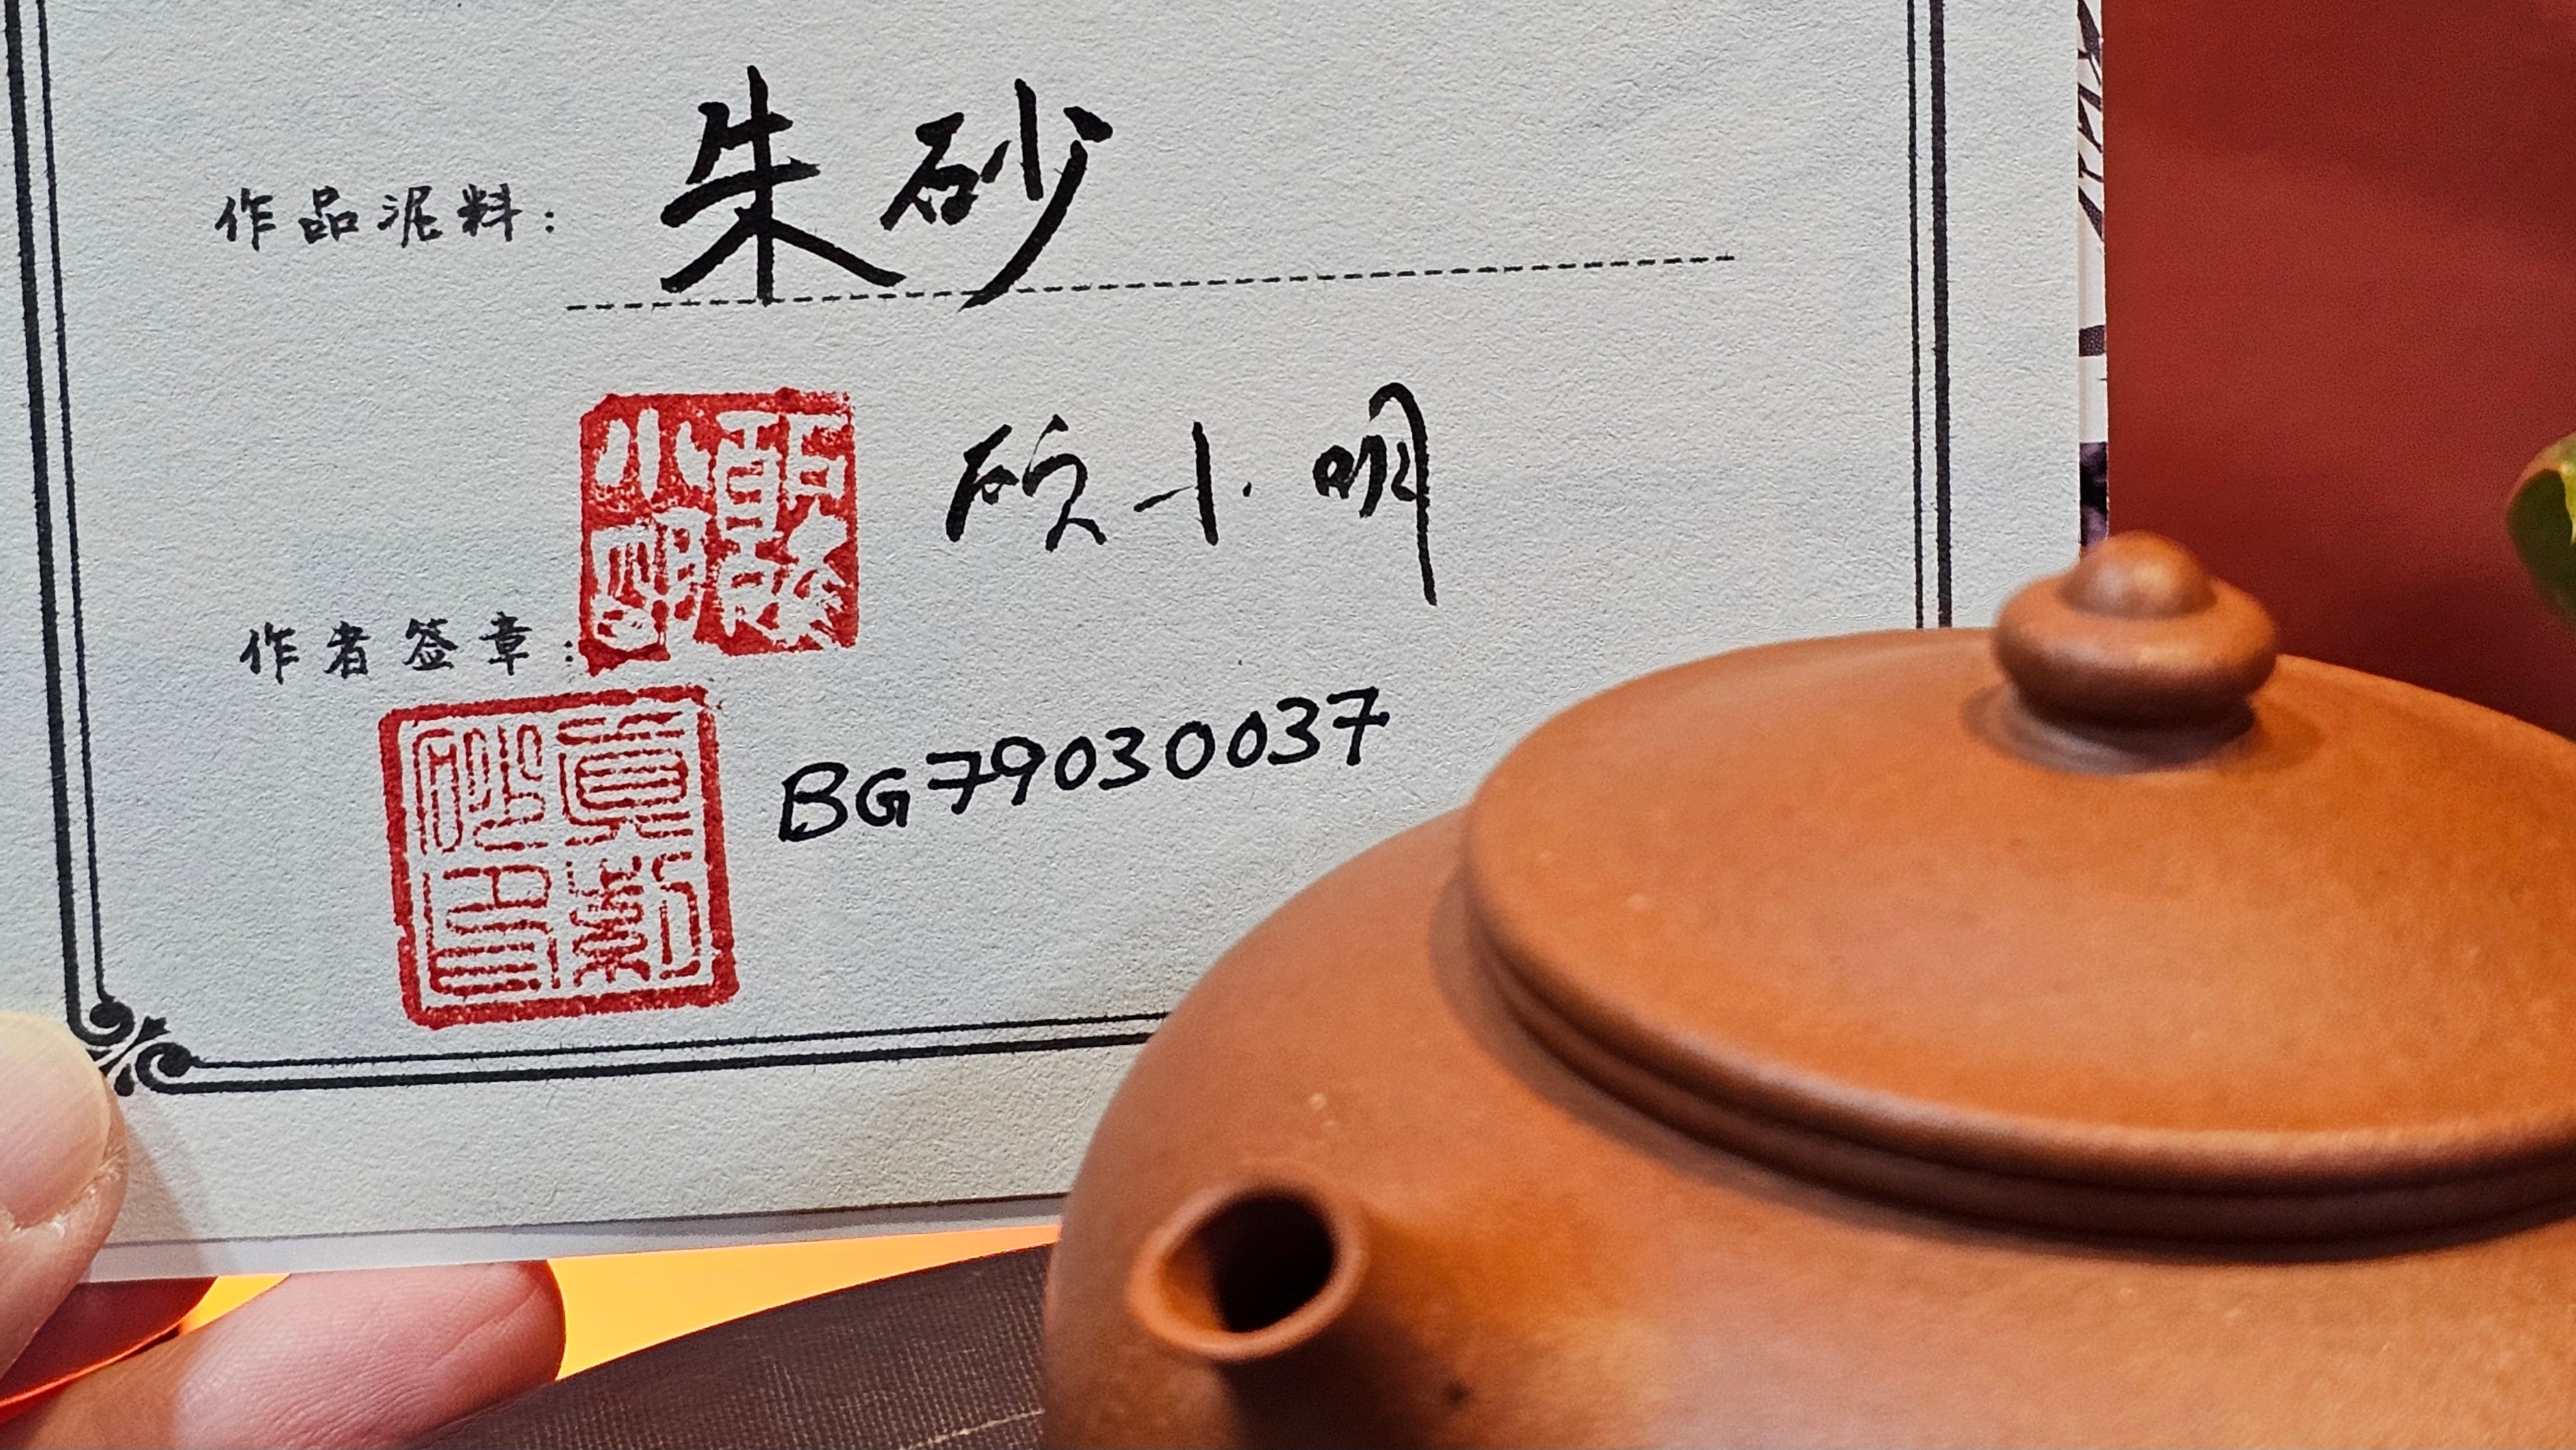 作品泥料: 朱砂
顾小明
作者签章:
BG79030037